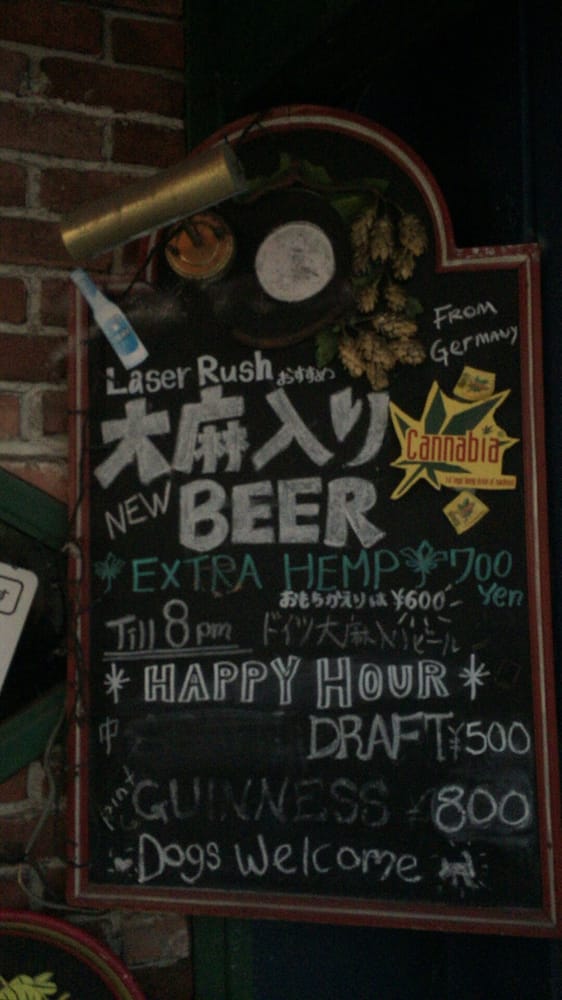 FROM
GERMANY
Laser Rush おすすめ
大麻入り
Cannabia
NEW BEER
EXTRA HEMP 700
yen
おもちかえりは ¥600
Till 8pm ドイツ大麻入りビール
HAPPY HOUR
中 DRAFT ¥500
pint GUINNESS ¥800
Dogs Welcome